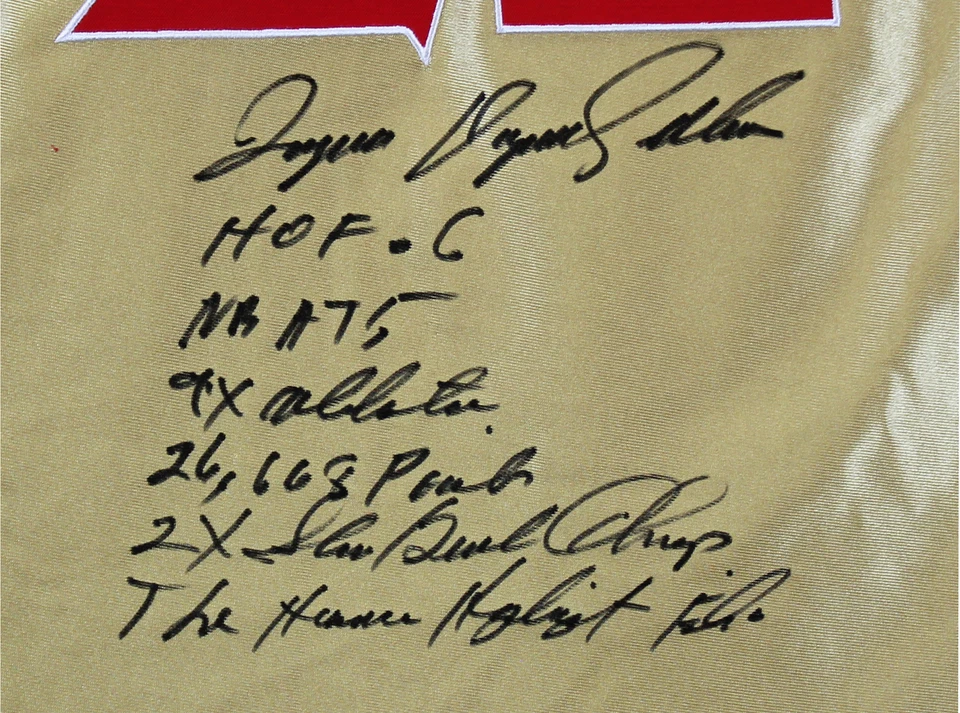 Jacques Dominique Wilkins
HOF. 6
NBA 75
9X allstar.
26,668 Points
2X Slam Dunk Champ
The Human Highlight Film